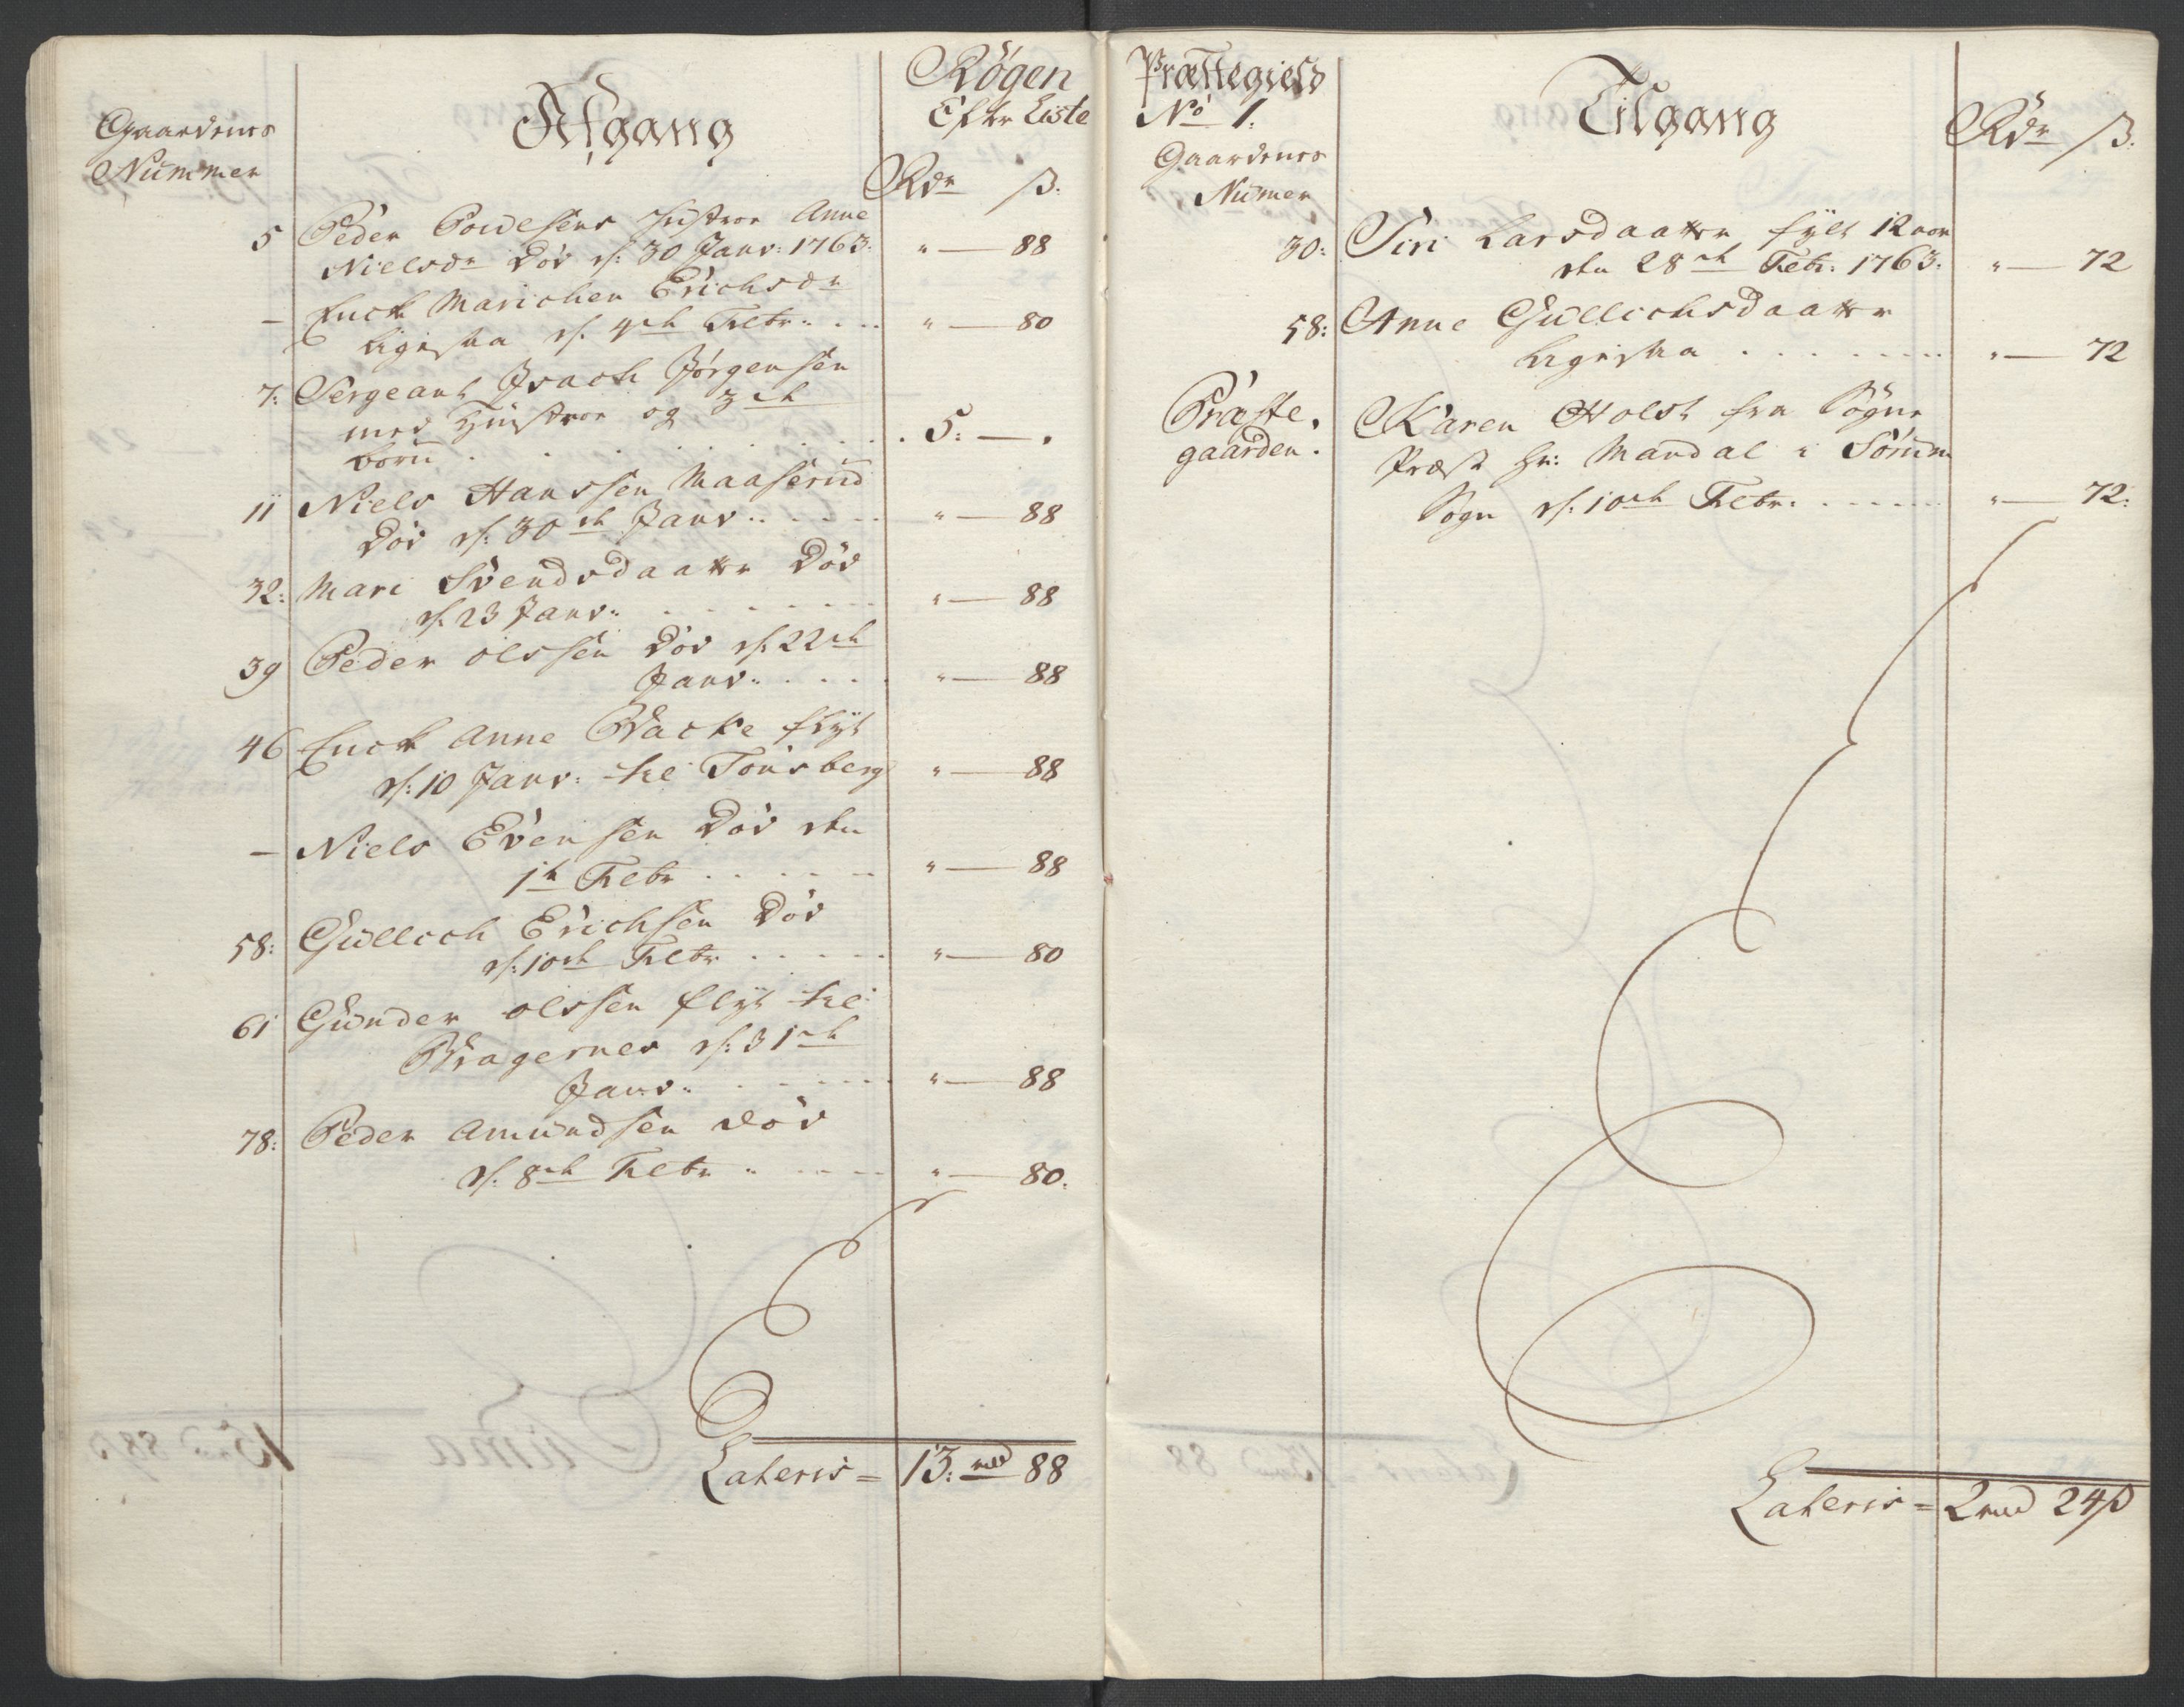 Røgen
Efter Liste
Afgang
Gaardenes
Nummer
Rdr ß:
5 Peder Powelsens Hustroe Anne
Nielsdr Død d: 30 Janv: 1763: " — 88
— Enck Marichen Erichsdr
ligesaa d. 4de Febr: " — 80
7: Sergeant Isach Jørgensen
med Hustroe og 3de
børn . 5: — .
11 Niels Hanssen Maaserud
Død d: 30de Janv: " — 88
32: Mari Svendsdaatter Død
d: 23 Janv: " — 88
39 Peder Olssen Død d: 22de
Janv: " — 88
46 Enck Anne Backe flyt
d: 10 Janv: til Tønsberg " — 88
— Niels Evensen Død den
1te Febr " — 88
58: Gullich Erichsen Død
d: 10de Febr " — 80
61 Gunder Olssen flyt til
Bragernes d: 31de
Janv: " — 88
78: Peder Amundsen død
d: 8de Febr " — 80:
Lateris = 13: rd 88
Præstegield
No 1:
Tilgang
Gaardenes
Numer
Rdr ß:
30: Siri Larsdaatter fylt 12 aar
den 28de Febr: 1763: " — 72
58: Anne Gullichsdaatter
ligesaa " — 72
Præste,
gaarden: Karen Holst fra Sogne
Præst Hr: Mandal i Sørum
Sogn d: 10de Febr: " — 72:
Lateris = 2 rd 24 ß